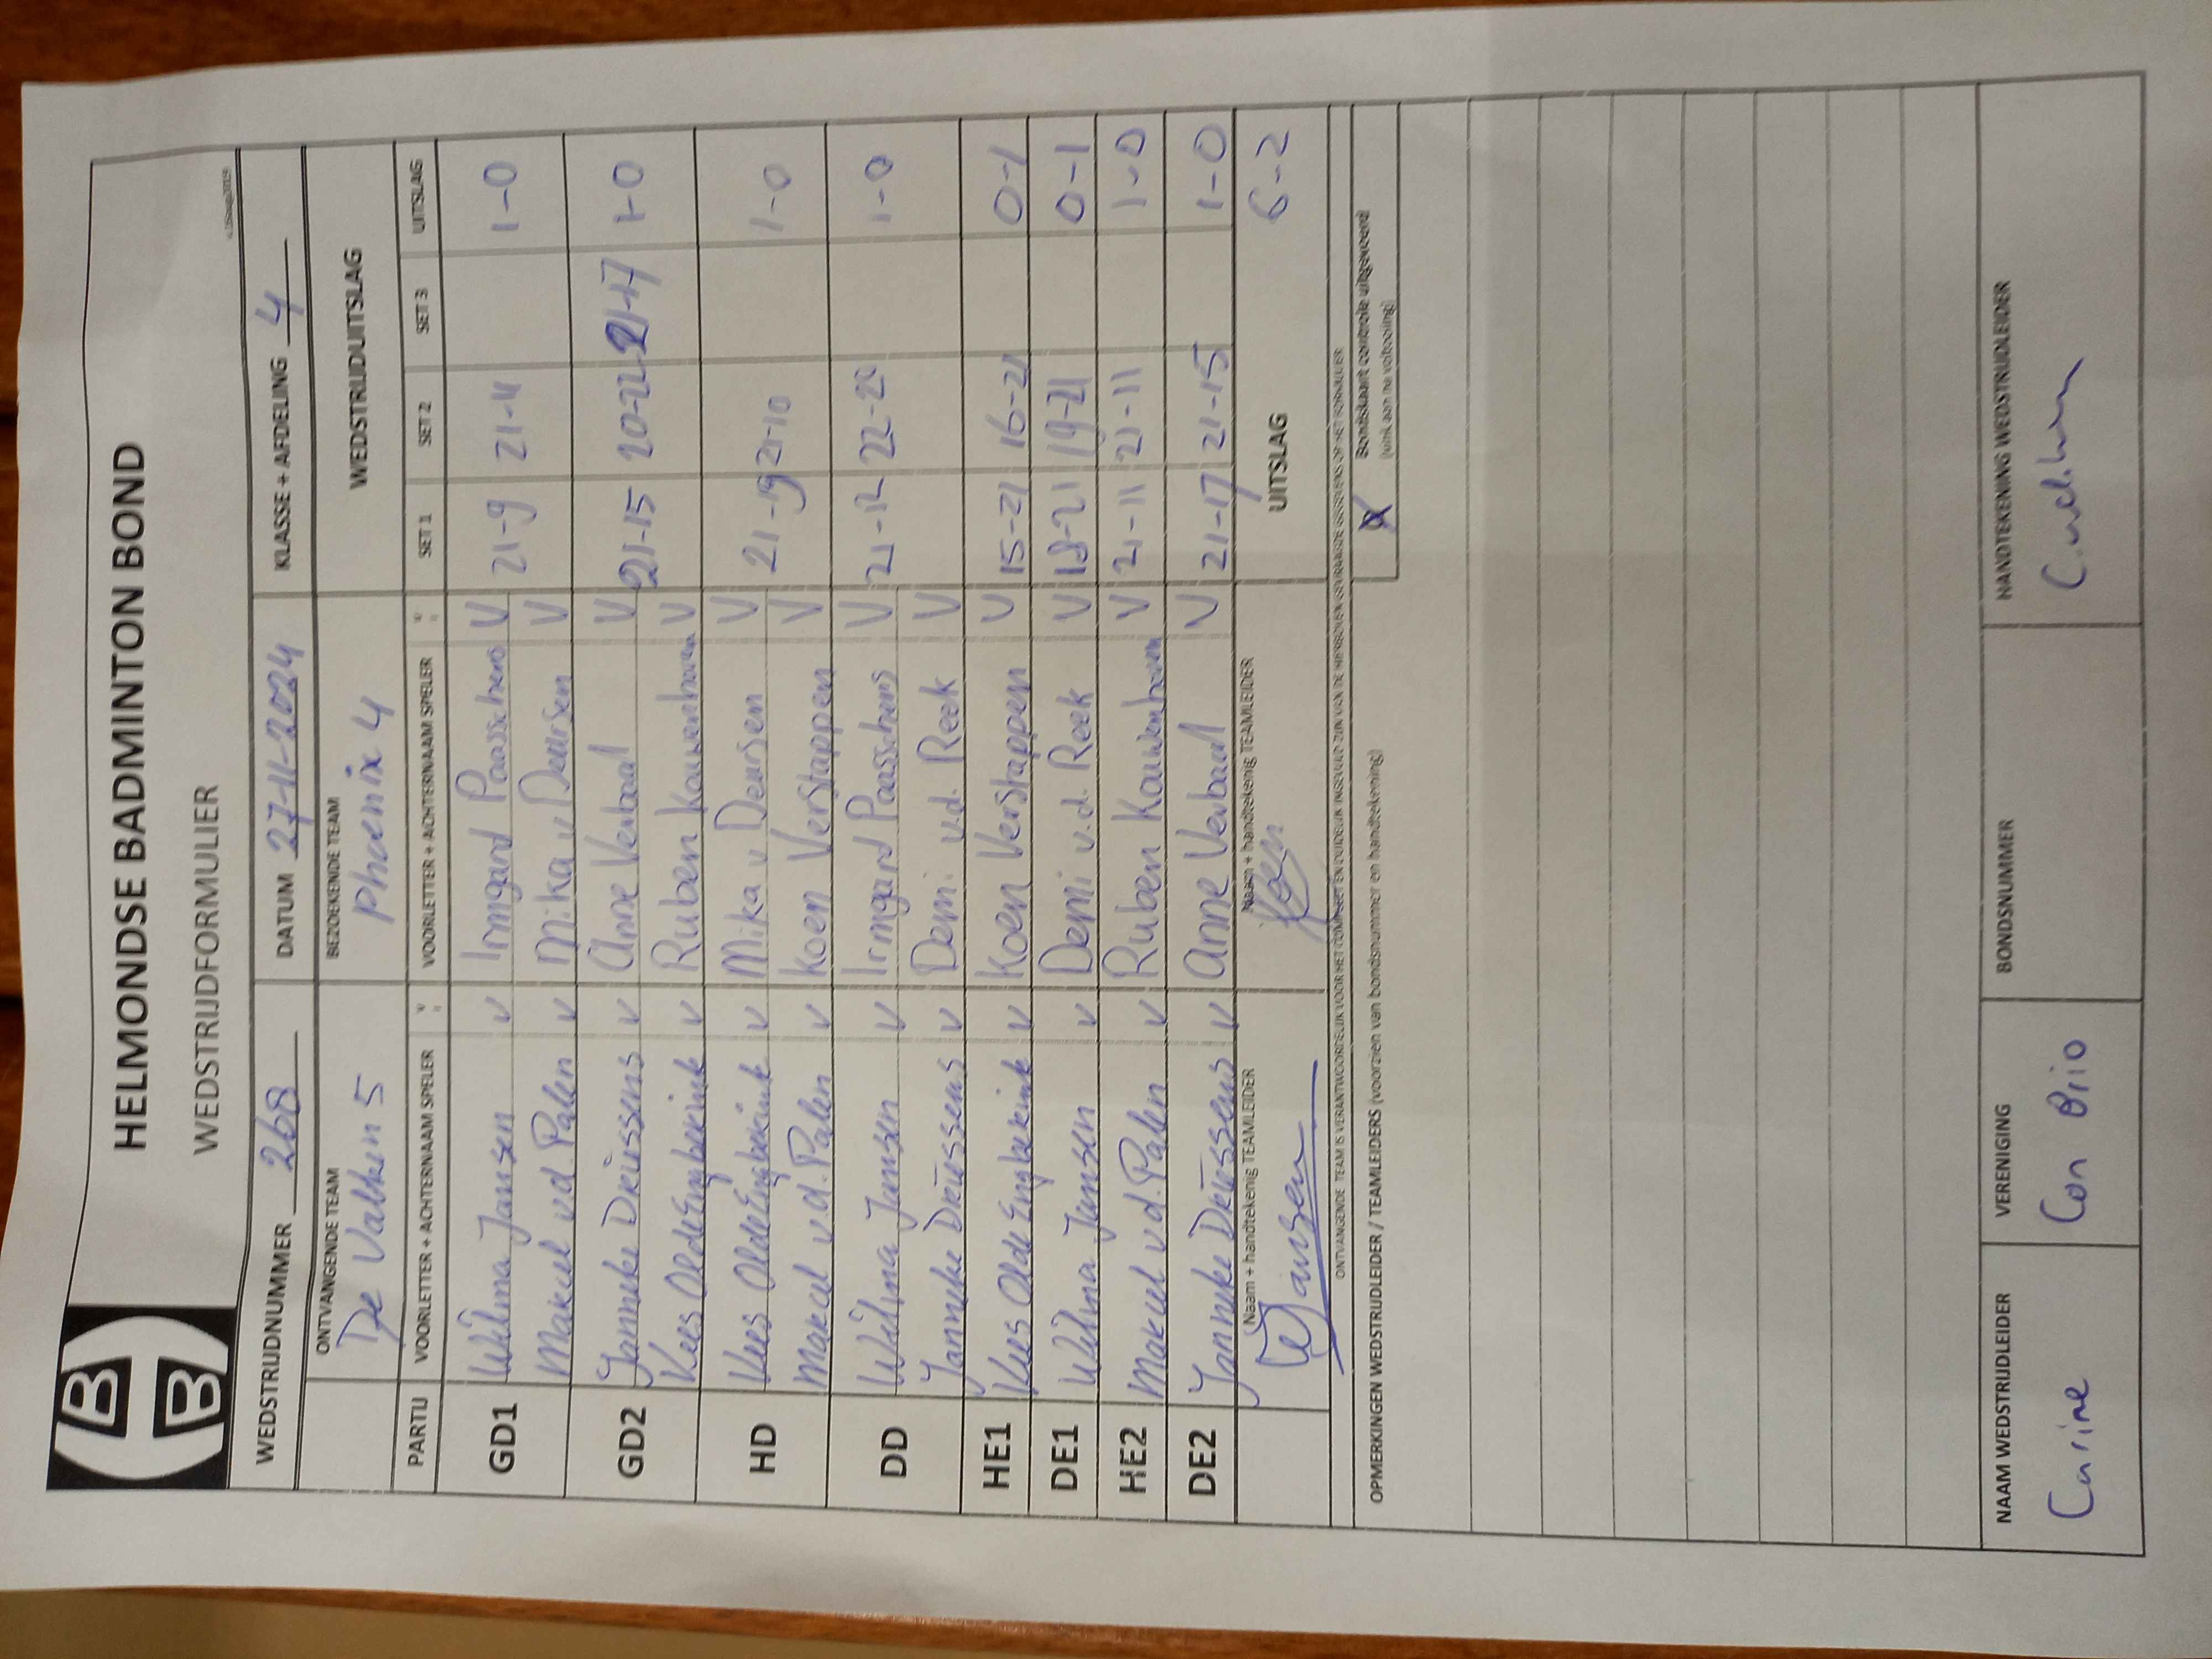 HELMONDSE BADMINTON BOND
WEDSTRIJDFORMULIER
WEDSTRIJDNUMMER 268 DATUM 27-11-2024 KLASSE + AFDELING 4
ONTVANGENDE TEAM BEZOEKENDE TEAM WEDSTRIJDUITSLAG
De Valken 5 Phoenix 4
PARTIJ VOORLETTER + ACHTERNAAM SPELER VOORLETTER + ACHTERNAAM SPELER SET 1 SET 2 SET 3 UITSLAG
GD1 Wilma Jansen v Irmgard Paasschens V 21-9 21-4 1-0
Marcel v.d. Palen v Mika v Deursen V
GD2 Janneke Driessens v Anne Verbaal V 21-15 20-22 21-17 1-0
Kees Olde Engberink v Ruben Kouwenhoven V
HD Kees Olde Engberink v Mika v Deursen V 21-19 21-10 1-0
Marcel v.d. Palen v Koen Verstappen V
DD Wilma Jansen v Irmgard Paasschens V 21-12 22-20 1-0
Janneke Driessens v Demi v.d. Reek V
HE1 Kees Olde Engberink v Koen Verstappen V 15-21 16-21 0-1
DE1 Wilma Jansen v Demi v.d. Reek V 18-21 19-21 0-1
HE2 Marcel v.d. Palen v Ruben Kouwenhoven V 21-11 21-11 1-0
DE2 Janneke Driessens v Anne Verbaal V 21-17 21-15 1-0
Naam + handtekenig TEAMLEIDER Naam + handtekenig TEAMLEIDER UITSLAG 6-2
WJansen Koen
ONTVANGENDE TEAM IS VERANTWOORDELIJK VOOR HET COMPLEET EN DUIDELIJK INGEVULD ZIJN VAN DE HIERBOVEN GEVRAAGDE GEGEVENS OP HET FORMULIER
OPMERKINGEN WEDSTRIJDLEIDER / TEAMLEIDERS (voorzien van bondsnummer en handtekening) X Bondskaart controle uitgevoerd
(vink aan na voltooiing)
NAAM WEDSTRIJDLEIDER VERENIGING BONDSNUMMER HANDTEKENING WEDSTRIJDLEIDER
Carine Con Brio